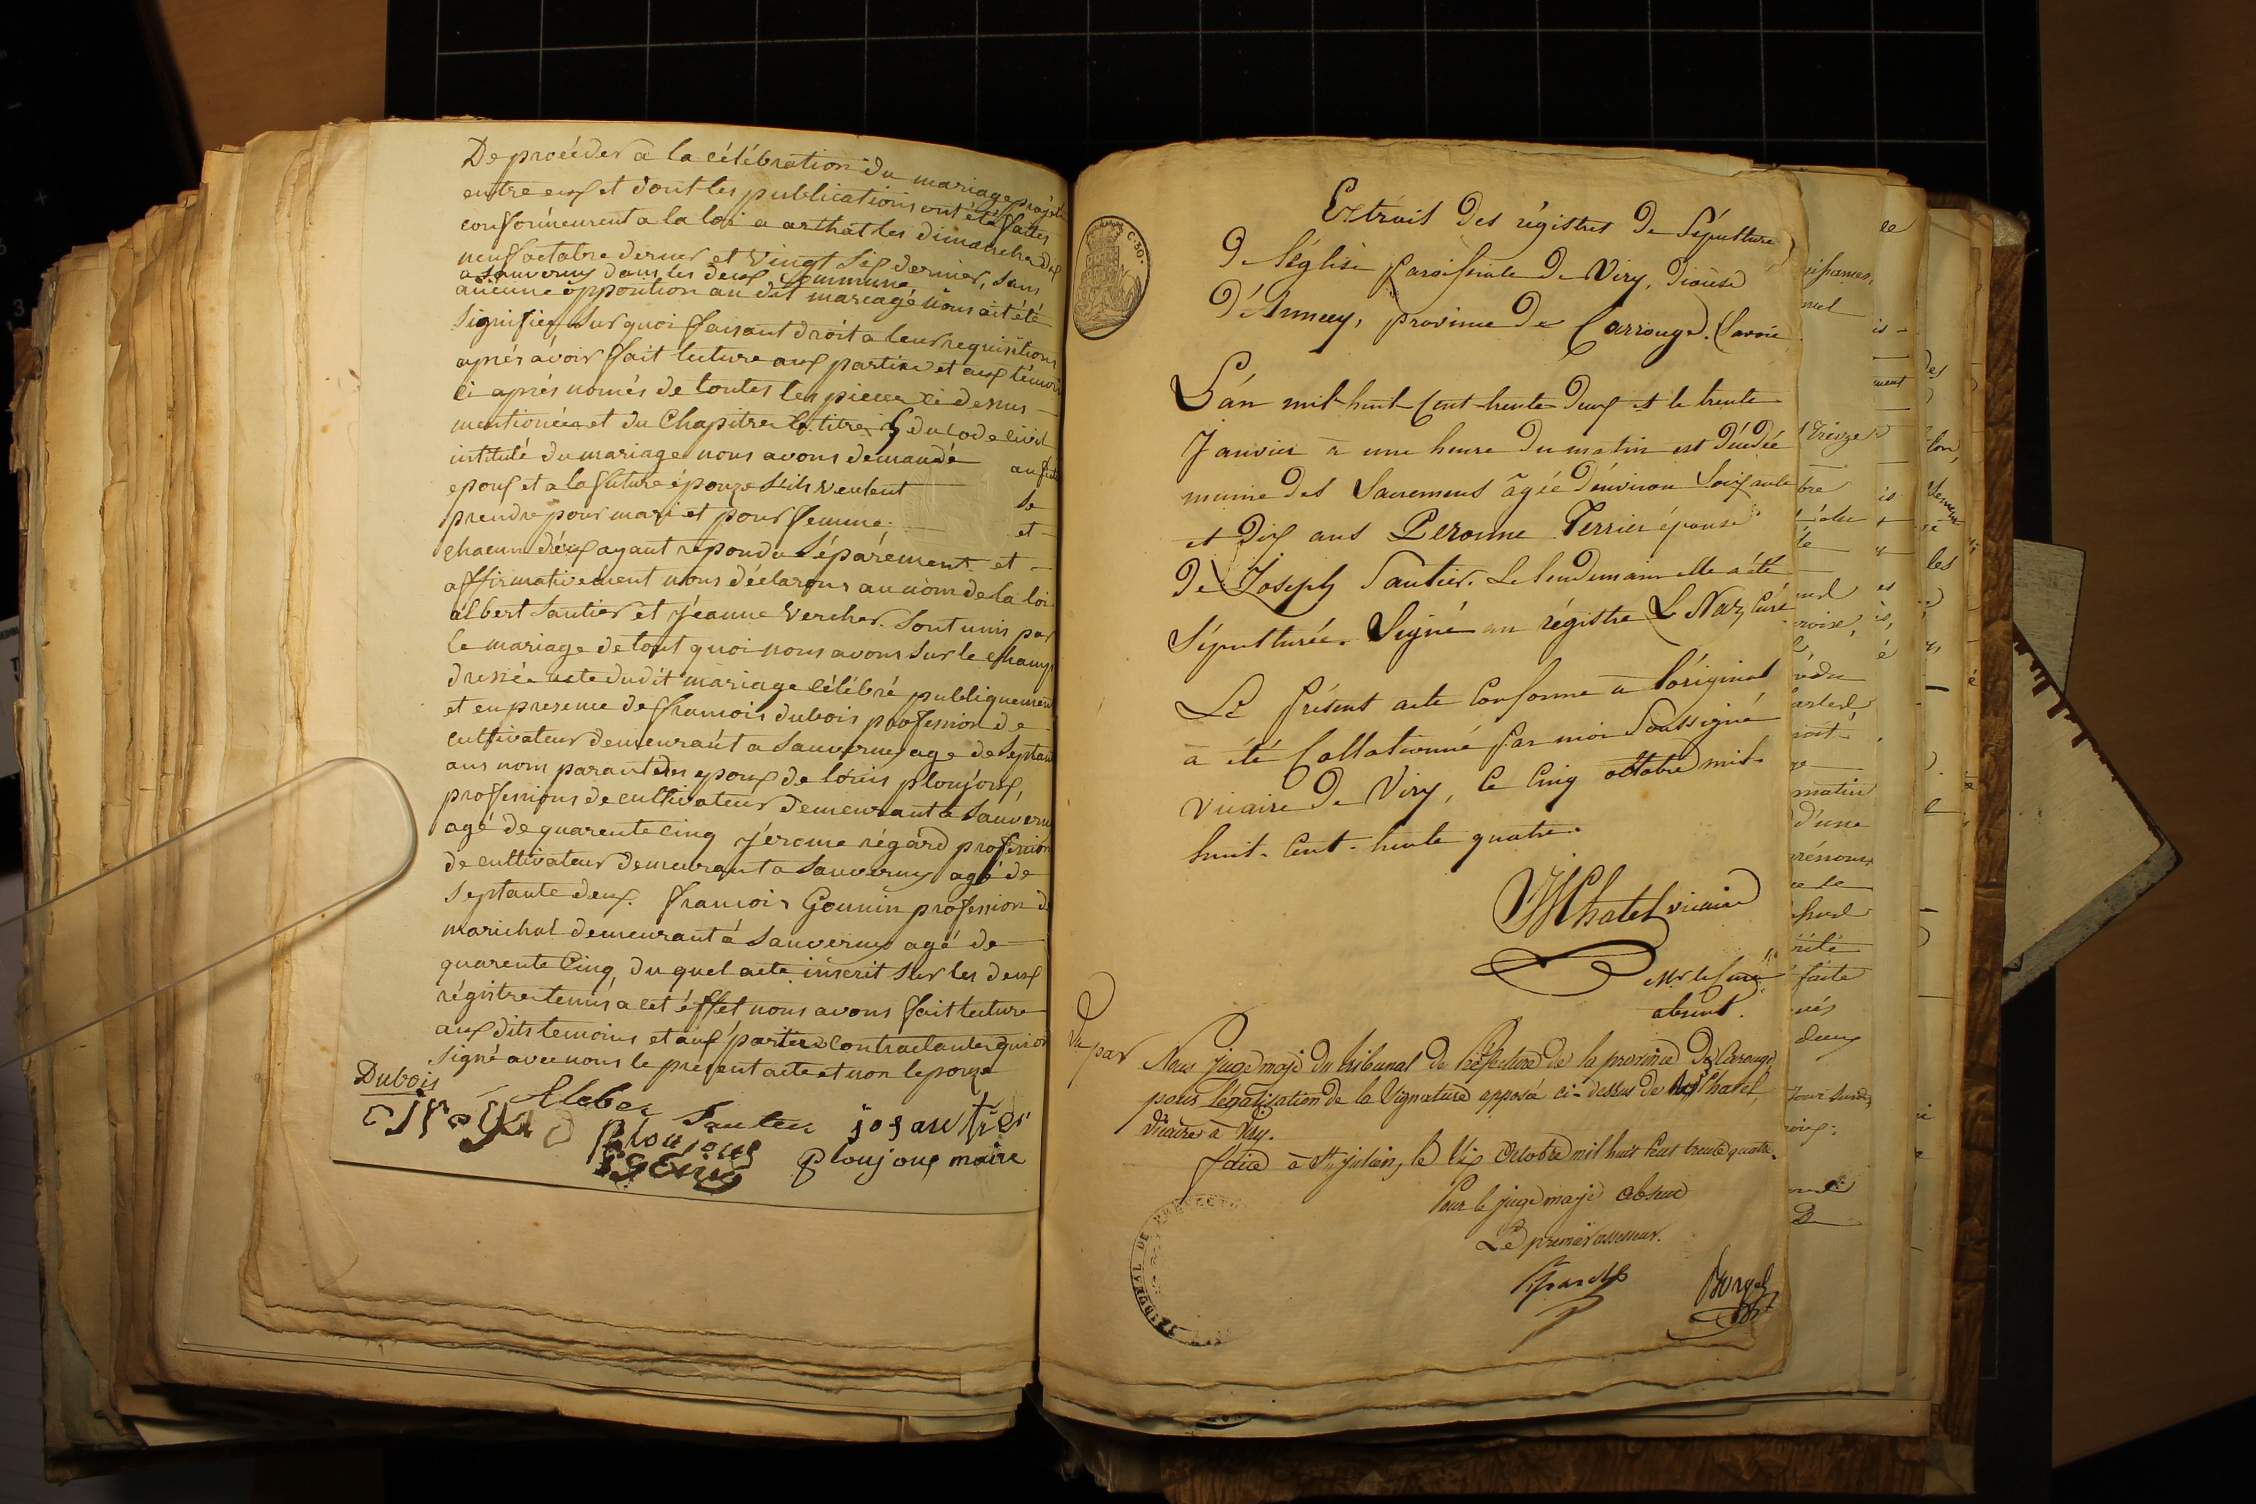 De procéder a la célébration du mariage projeté
entre eux et dont les publications ont été faites
conformément a la loi a arthat les dimanche des
neuf octobre dernier et vingt six dernier, sans
a Sauverny dans les deux Commune,
aucune opposition au dit mariage nous ait été
Signifier Sur quoi faisant droit a leur requisitions
aprés avoir fait lecture aux partice et aux témoin
ci aprés només de toutes les pieces ci desus
mentionées et du Chapitre 6 titre 5 du Code civil
intitulé du mariage nous avons demandé au futur
epoux et a la future épouze S'ils veulent se
prendre pour mari et pour femme et
chacun d'eux ayant repondu Séparément et
affirmativement nous déclarons au nom de la loi
albert Sautier et Jéanne Vercher Sont unis par
le mariage de tout quoi nous avons sur le champ
dressée acte dudit mariage célébré publiquement
et en presence de francois dubois profession de
cultivateur demeurant a Sauverny age de Septante
ans nom parant des epoux de louis ploujoux,
professions de cultivateur demeurant a Sauverny
agé de quarente cinq jérome régard profession
de cultivateur demeurant a Sauverny agé de
Septante deux. francois Gounin profession de
marichal demeurant a Sauverny agé de
quarente Cinq, du quel acte inscrit sur les deux
régistre tenus a cet éffet nous avons fait lecture
aux dits temoins et aux parties contractantes qui on
Signé avec nous le present acte et non lepouze
Dubois
Sautier josautier
ploujoux
ploujoux maire
C. 50.
Extrait Des régistres De Sépulture
De l'église Paroissiale De Viry, Diocèse
D'Annecy, province De Carrouge. (Savoie
L'an mil huit Cent trente Deux et le trente
Janvier à une heure Du matin est Décédée
munie Des Sacremens âgée D'environ Soixante
et Dix ans Peronne Terrier épouse
De Joseph Sautier. Le lendemain elle a été
Sépulturée. Signé au régistre L. Naz, Curé
Le Présent acte Conforme à l'original
à été Collationné Par moi Soussigné
Vicaire De Viry, le Cinq octobre mil-
huit-Cent-trente quatre.
Chatel vicaire
Mr. le Curé
absent.
Vu par Nous juge maje du tribunal de Préfecture de la province de Carouge
pour légalisation de la Signature apposée ci-dessus de Chatel,
Vicaire à Viry.
faite à St. Julien, le Six Octobre mil huit Cent trente quatre.
Pour le juge maje absent
Le premier assesseur.
TRIBUNAL DE